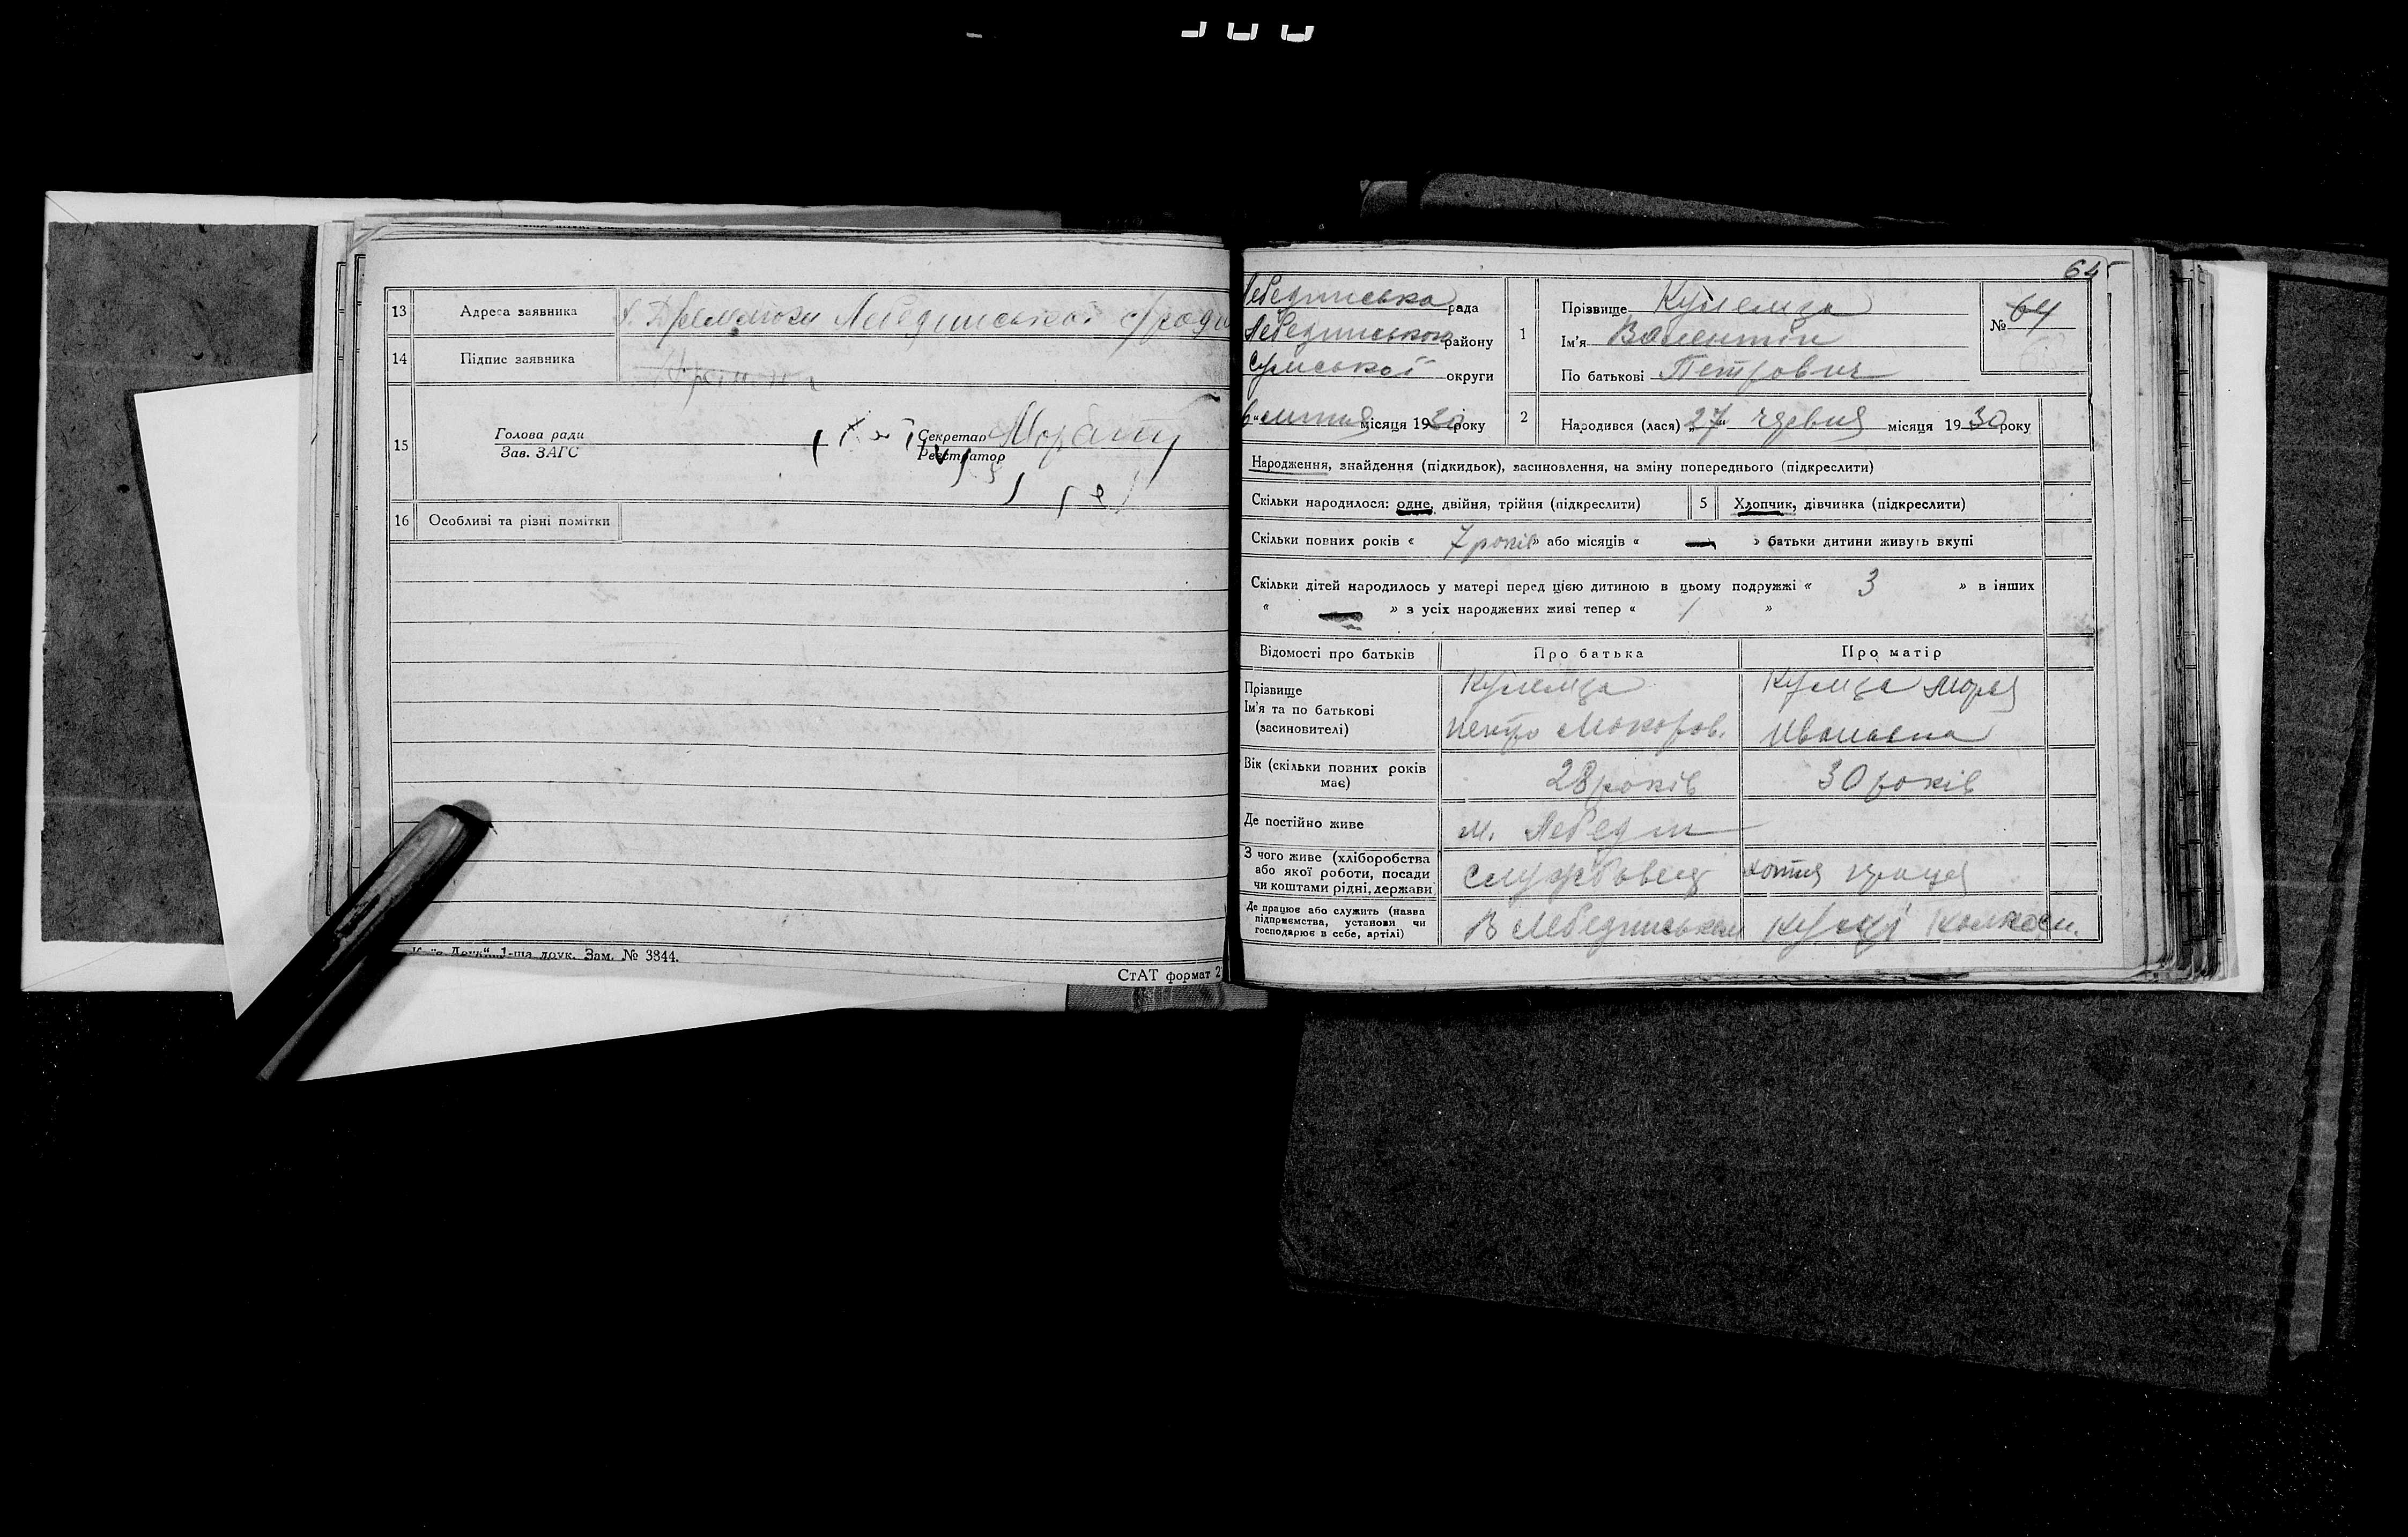 13 Адреса заявника Лебединської с/ради
14 Підпис заявника
15 Голова ради Секретар
Зав. ЗАГС Реєстратор
16 Особливі та різні помітки
1-ша друк. Зам. № 3844.
СтАТ формат
64
Лебединська рада
Лебединського району
Сумської округи
6 " липня місяця 1930 року
1 Прізвище
Ім'я Валентин
По батькові Петрович
№ 64
2 Народився (лася) „27" червня місяця 1930 року
Народження, знайдення (підкидьок), засиновлення, на зміну попереднього (підкреслити)
Скільки народилося: одне, двійня, трійня (підкреслити) 5 Хлопчик, дівчинка (підкреслити)
Скільки повних років « 7 років » або місяців « — » батьки дитини живуть вкупі
Скільки дітей народилось у матері перед цією дитиною в цьому подружжі « 3 » в інших
« — » з усіх народжених живі тепер « 1 »
Відомості про батьків Про батька Про матір
Прізвище
Ім'я та по батькові
(засиновителі) Петро Макаров. Ивановна
Вік (скільки повних років має) 28 років 30 років
Де постійно живе м. Лебедин
З чого живе (хліборобства
або якої роботи, посади
чи коштами рідні, держави службовец хатня праця
Де працює або служить (назва
підприємства, установи чи
господарює в себе, артілі) В Лебединськом